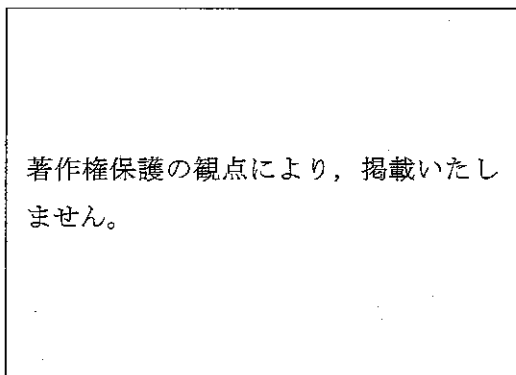 著作権保護の観点により，掲載いたし
ません。